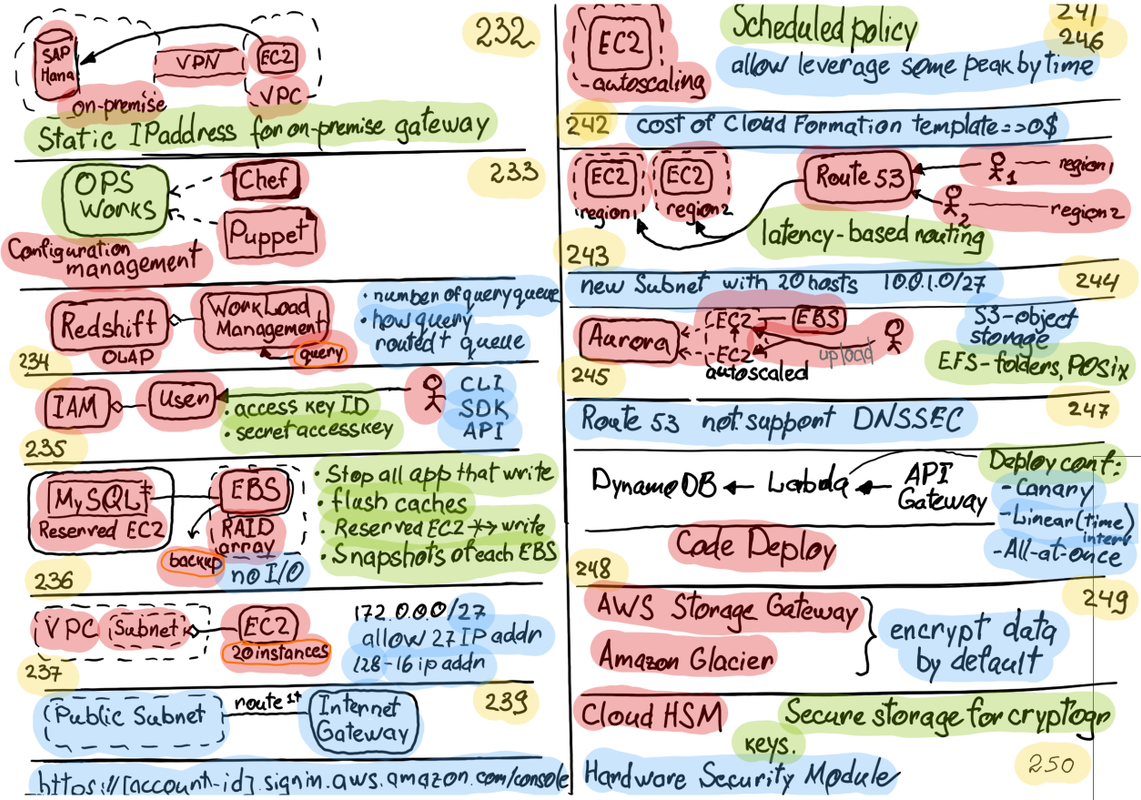 SAP
Hana
VPN
EC2
232
on-premise
VPC
Static IP address for on-premise gateway
OPS
Works
Chef
233
Puppet
Configuration
management
Redshift
WorkLoad
Management
• number of query queue
• how query
routed + queue
OLAP
query
234
IAM
User
• access key ID
• secret access key
CLI
SDK
API
235
MySQL
Reserved EC2
EBS
RAID
array
• Stop all app that write
• flush caches
Reserved EC2 write
• Snapshots of each EBS
backup
no I/O
236
VPC
Subnet
EC2
20 instances
172.0.0.0/27
allow 27 IP addr
128-16 ip addr
237
Public Subnet
route
Internet
Gateway
239
https://[account-id].signin.aws.amazon.com/console
EC2
- autoscaling
Scheduled policy
241
246
allow leverage some peak by time
242
cost of Cloud Formation template ==> 0$
EC2
EC2
Route 53
1
region1
2
region2
region1
region2
latency-based routing
243
new Subnet with 20 hosts 10.0.1.0/27
244
Aurora
EC2
EBS
EC2
upload
autoscaled
S3-object
storage
EFS-folders, POSIX
245
Route 53 not support DNSSEC
247
DynamoDB
Lambda
API
Gateway
Deploy conf:
- Canary
- Linear (time)
interv
- All-at-once
Code Deploy
248
AWS Storage Gateway
Amazon Glacier
encrypt data
by default
249
Cloud HSM
Secure storage for cryptogr
keys.
Hardware Security Module
250